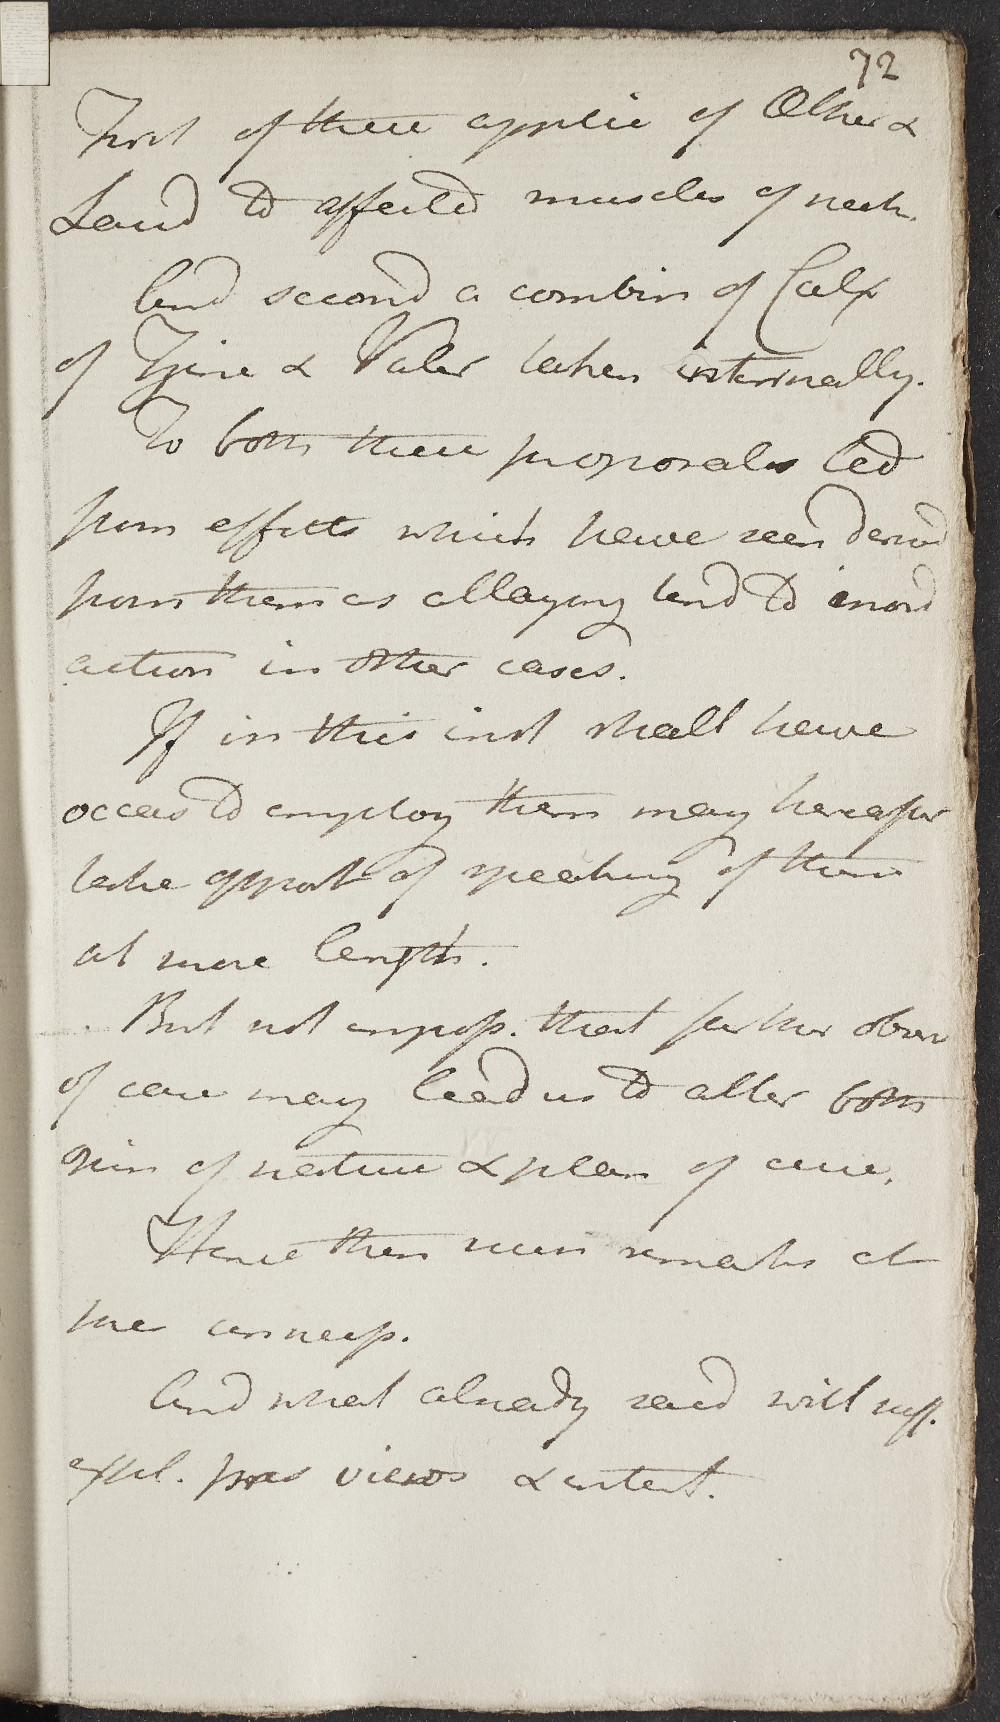 72
First of these applic of Æther &
Laud to affected muscles of neck.
And second a combin of Calx
of Zinc & Valer taken internally.
To both these proposals led
from effects which have seen derived
from them as allaying tend to inord
action in other cases.
If in this inst shall have
occas to employ them may hereafter
take opport of speaking of them
at more length.
But not imposs. that further observ
of case may lead us to alter both
opin of nature & plan of cure.
Hence then more remarks at
time unnecess.
And what already said will suff.
expl. pres views & intent.